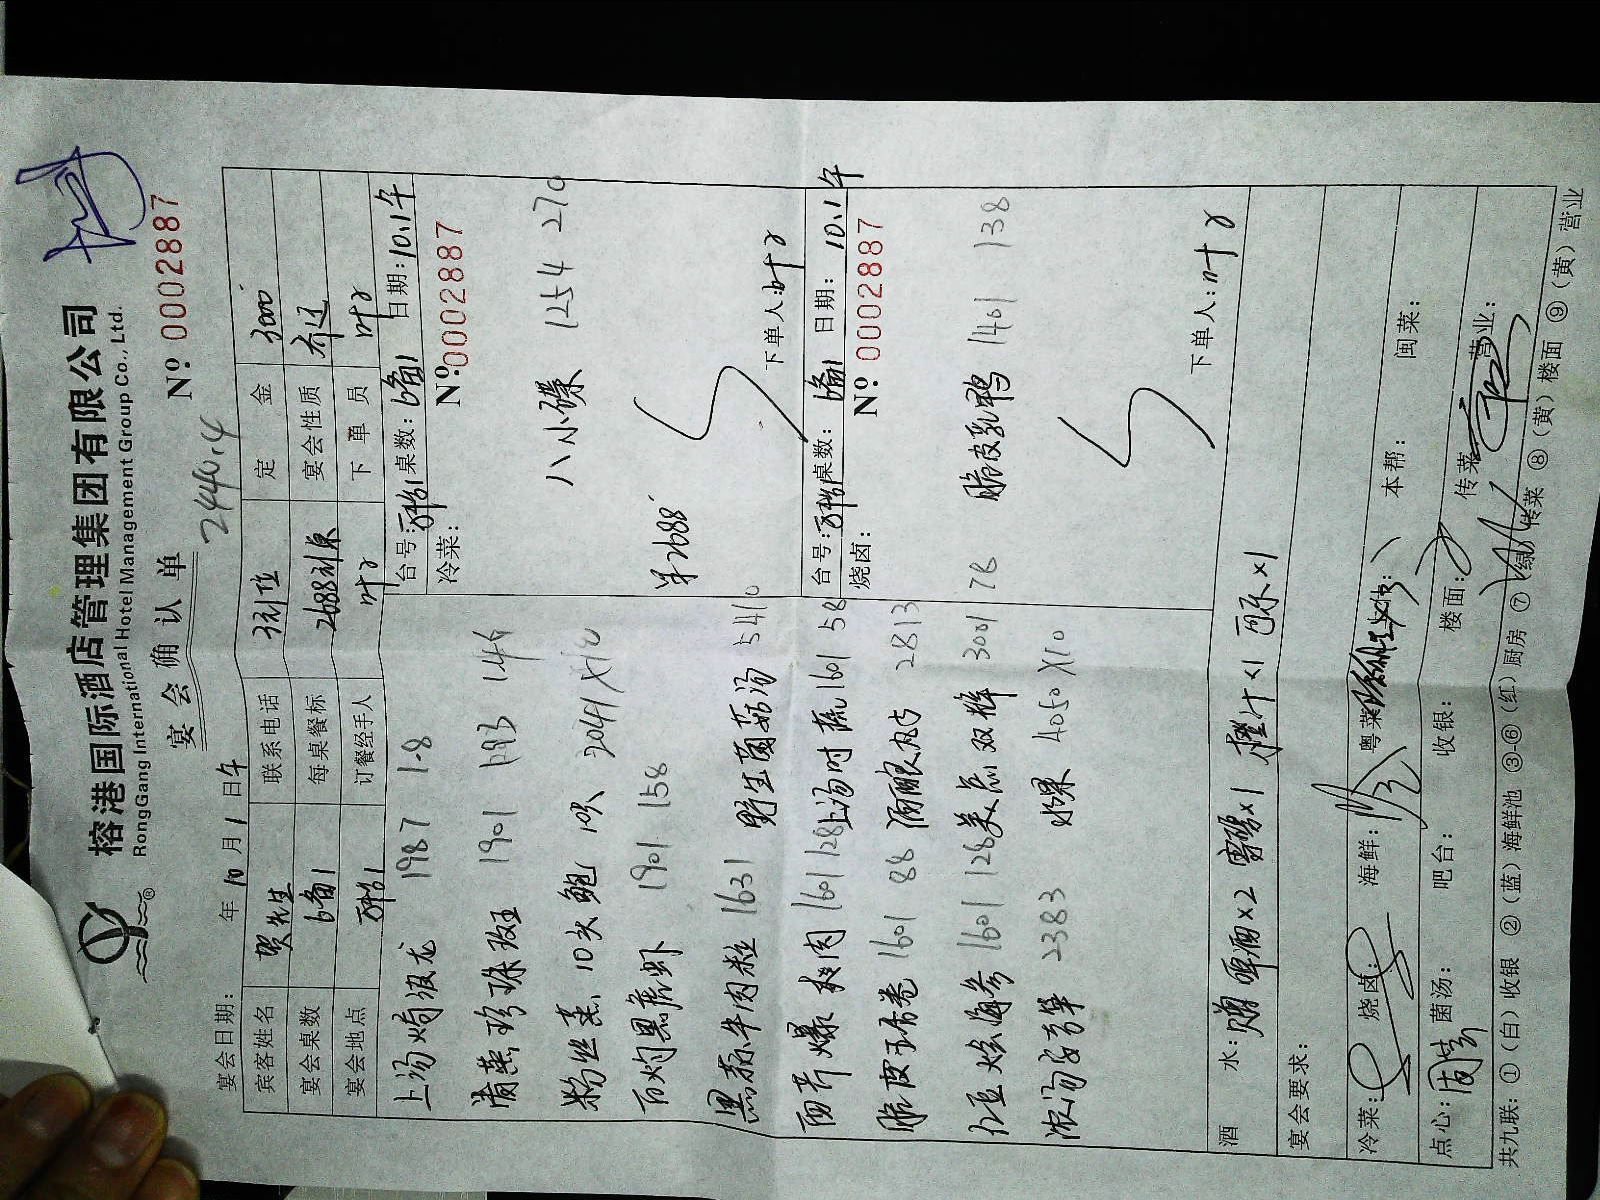 榕港国际酒店管理集团有限公司
RongGang International Hotel Management Group Co., Ltd.
宴会确认单
2440.4
Nº 0002887
宴会日期： 年 10 月 1 日午
宾客姓名 贺先生 联系电话 定金 3000
宴会桌数 6备1 每桌餐标 2688 宴会性质
宴会地点 订餐经手人 叶 下单员 叶
台号： 桌数：6备1 日期：10.1午
冷菜： Nº:0002887
八小碟 1254 270
单2688
下单人：叶
台号： 桌数：6备1 日期：10.1午
烧卤： Nº:0002887
脆皮乳鸭 1401 138
下单人：叶
上汤焗波龙 1987 1-8
清蒸珍珠斑 1901
粉丝蒸10头鲍 10只 2041 X10
白灼黑虎虾 1901 158
黑蒜牛肉粒 1631 野生菌菇汤 5410
西芹爆 肉 1601 128 上汤时蔬 1601 58
脆皮 卷 1601 88 酒酿丸子 2813
海参 1601 128 美点双辉 3001 78
浓汤 2383 水果 4050 X10
酒水：赠啤酒×2 雪碧×1 橙汁×1 可乐×1
宴会要求：
冷菜： 烧卤： 海鲜： 粤菜： 本帮： 闽菜：
点心： 菌汤： 吧台： 收银： 楼面： 传菜： 营业：
共九联：①（白）收银 ②（蓝）海鲜池 ③-⑥（红）厨房 ⑦（绿）传菜 ⑧（黄）楼面 ⑨（黄）营业